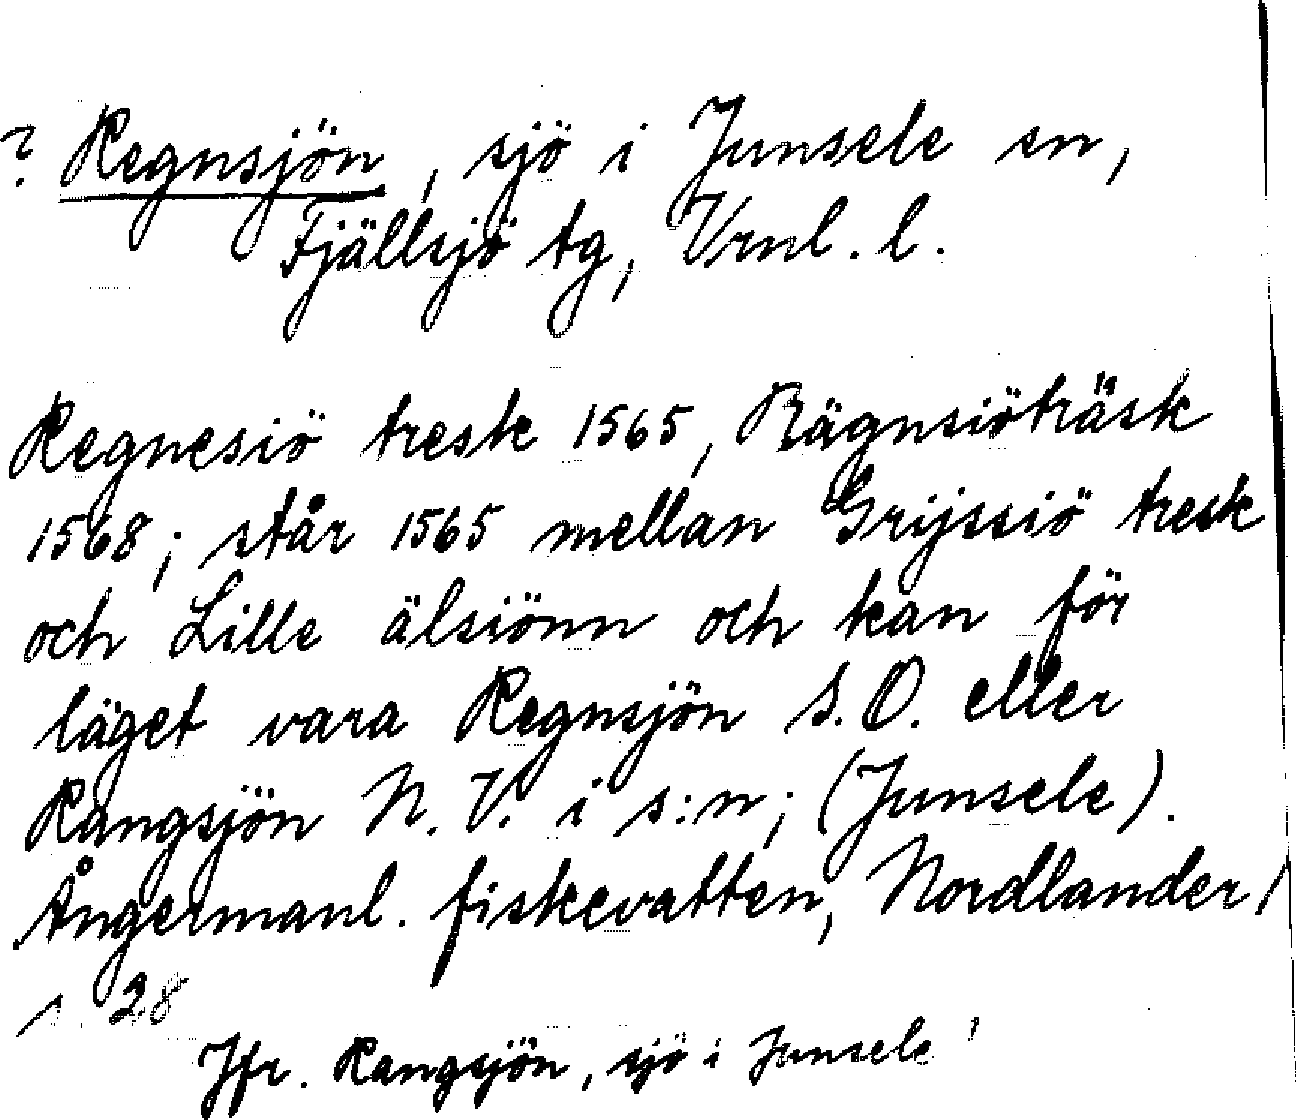 ? Regnsjön, sjö i Junsele sn,
Fjällsjö tg, Vrnl. l.
Regnesiö tresk 1565, Rägnsiöträsk
1568; står 1565 mellan Grijssiö tresk
och Lille älsiönn och kan för
läget vara Regnsjön S.O. eller
Rangsjön N.V. i s:n; (Junsele).
Ångermanl. fiskevatten, Nordlander,
s. 28
Jfr. Rangsjön, sjö i Junsele